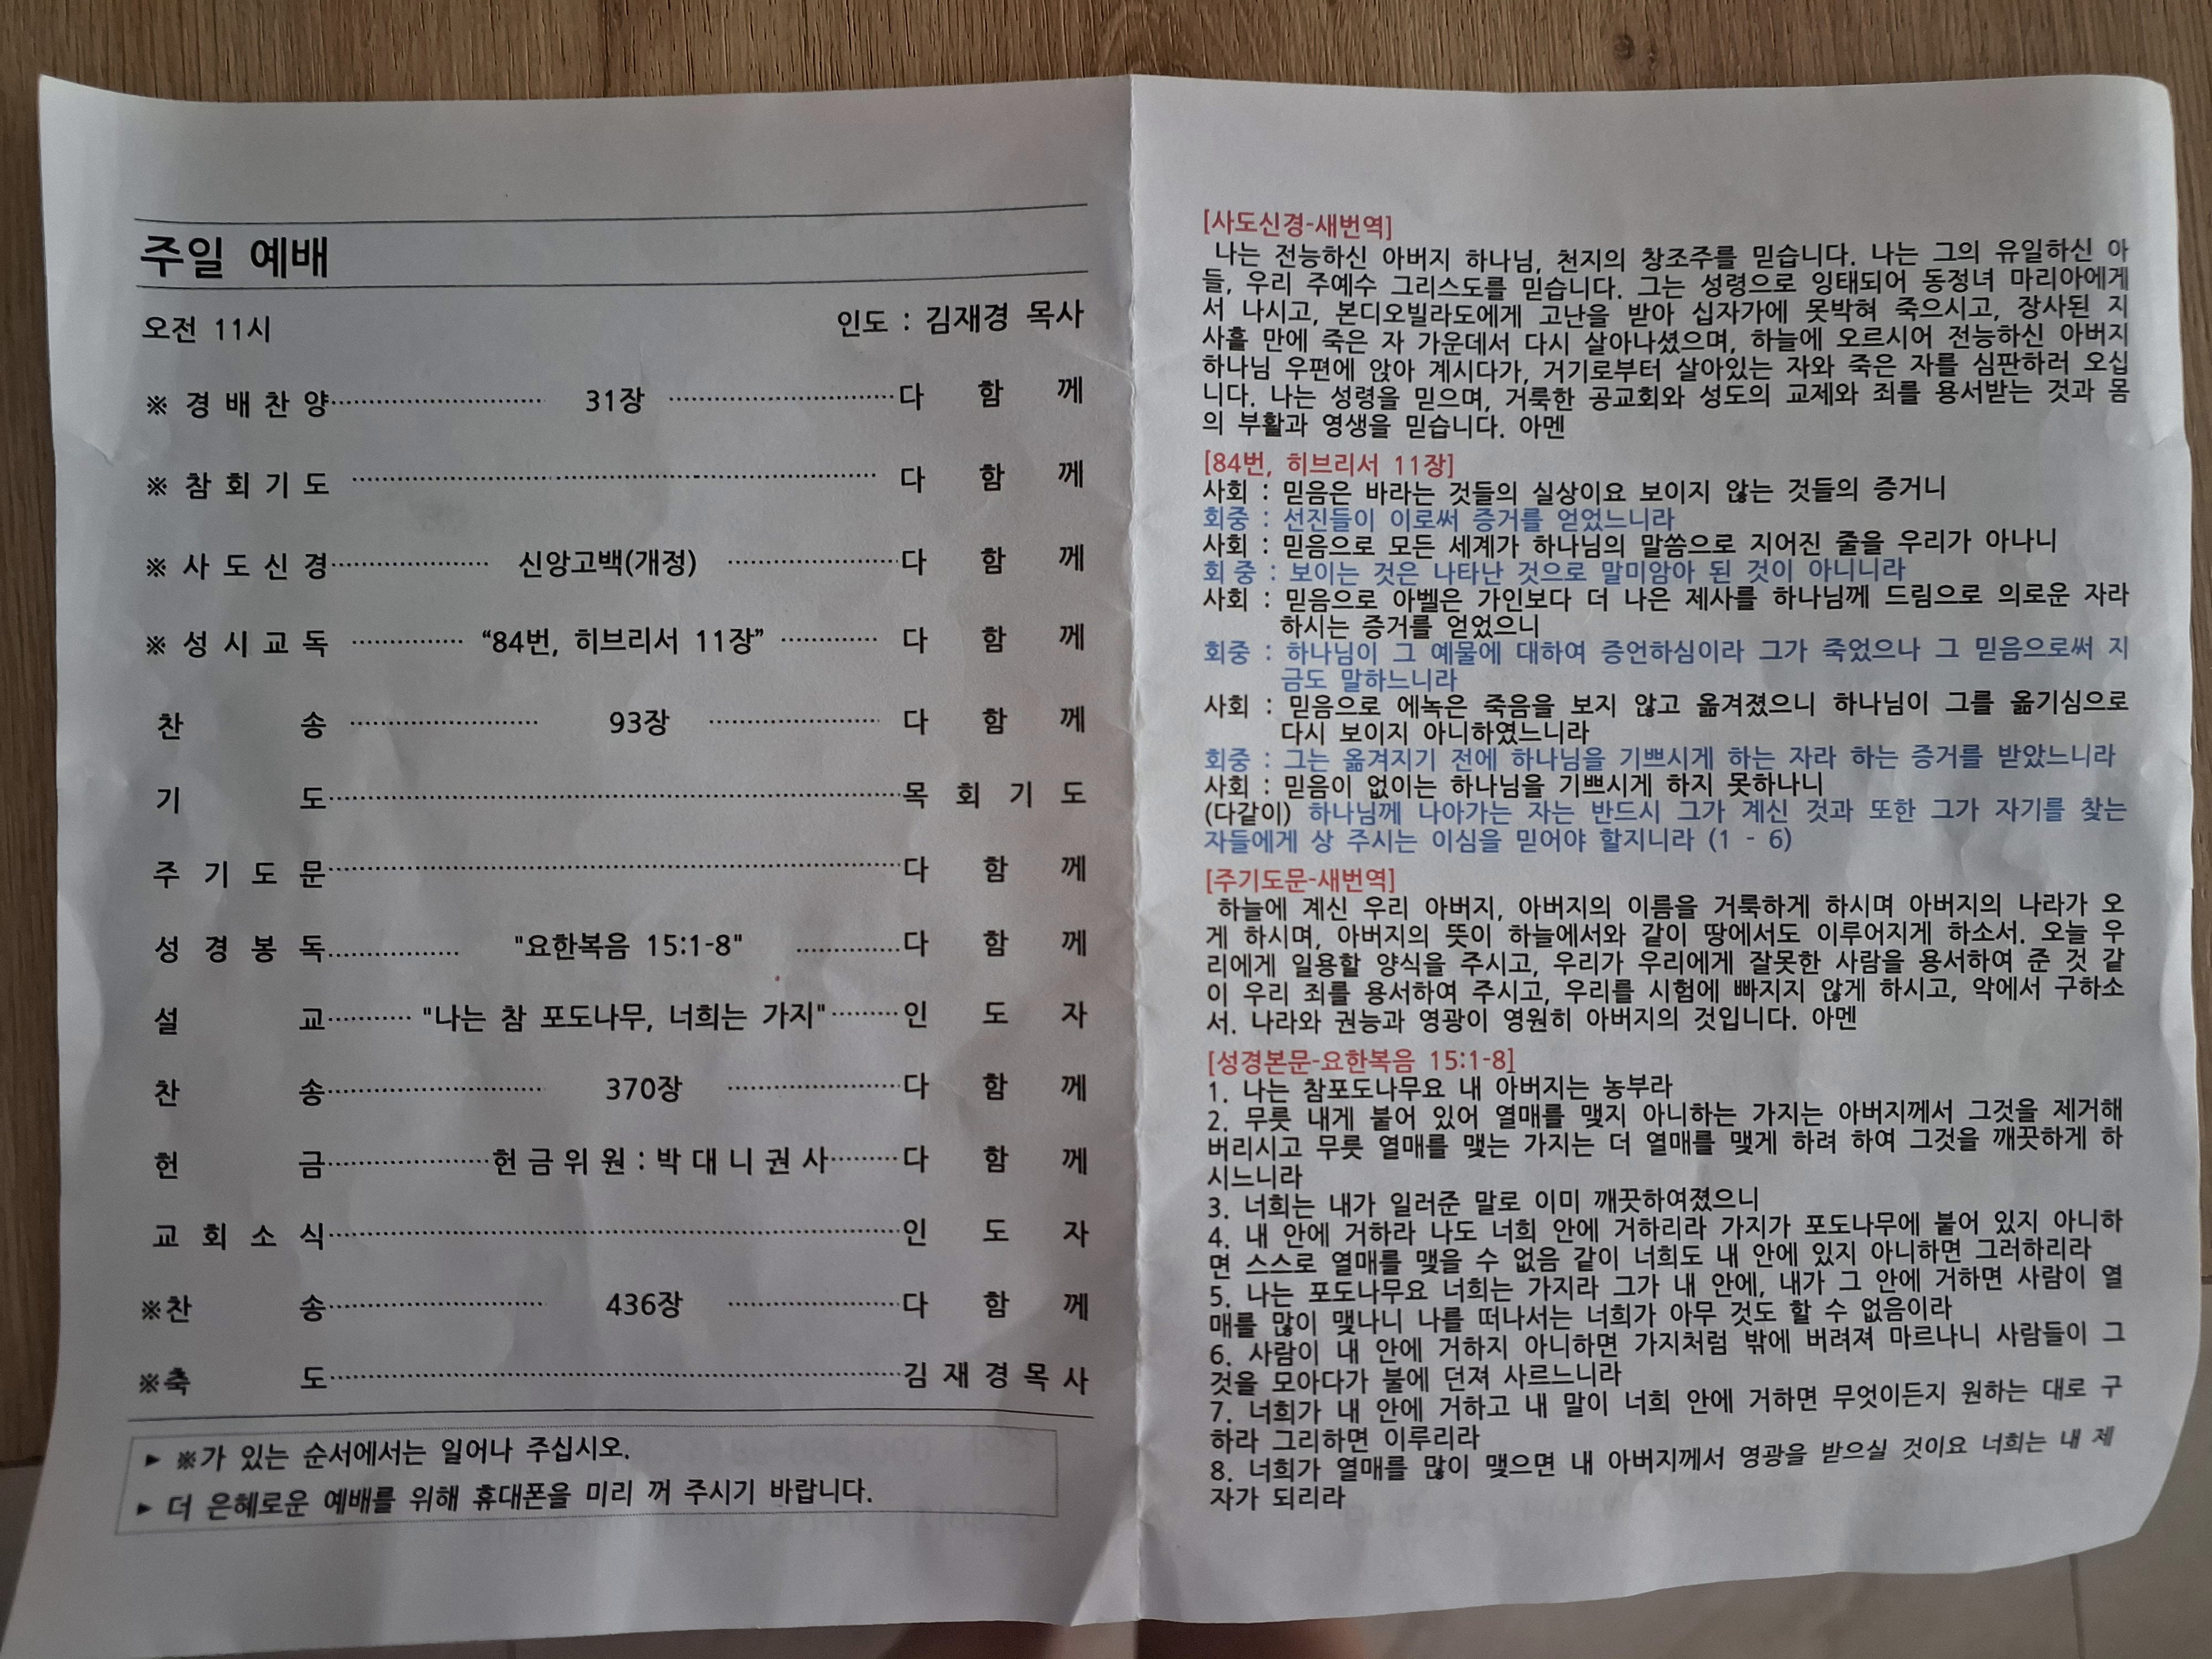 주일 예배
오전 11시 인도 : 김재경 목사
※ 경 배 찬 양 31장 다 함 께
※ 참 회 기 도 다 함 께
※ 사 도 신 경 신앙고백(개정) 다 함 께
※ 성 시 교 독 “84번, 히브리서 11장” 다 함 께
찬 송 93장 다 함 께
기 도 목 회 기 도
주 기 도 문 다 함 께
성 경 봉 독 "요한복음 15:1-8" 다 함 께
설 교 "나는 참 포도나무, 너희는 가지" 인 도 자
찬 송 370장 다 함 께
헌 금 헌 금 위 원 : 박 대 니 권 사 다 함 께
교 회 소 식 인 도 자
※찬 송 436장 다 함 께
※축 도 김 재 경 목 사
► ※가 있는 순서에서는 일어나 주십시오.
► 더 은혜로운 예배를 위해 휴대폰을 미리 꺼 주시기 바랍니다.
[사도신경-새번역]
나는 전능하신 아버지 하나님, 천지의 창조주를 믿습니다. 나는 그의 유일하신 아
들, 우리 주예수 그리스도를 믿습니다. 그는 성령으로 잉태되어 동정녀 마리아에게
서 나시고, 본디오빌라도에게 고난을 받아 십자가에 못박혀 죽으시고, 장사된 지
사흘 만에 죽은 자 가운데서 다시 살아나셨으며, 하늘에 오르시어 전능하신 아버지
하나님 우편에 앉아 계시다가, 거기로부터 살아있는 자와 죽은 자를 심판하러 오십
니다. 나는 성령을 믿으며, 거룩한 공교회와 성도의 교제와 죄를 용서받는 것과 몸
의 부활과 영생을 믿습니다. 아멘
[84번, 히브리서 11장]
사회 : 믿음은 바라는 것들의 실상이요 보이지 않는 것들의 증거니
회중 : 선진들이 이로써 증거를 얻었느니라
사회 : 믿음으로 모든 세계가 하나님의 말씀으로 지어진 줄을 우리가 아나니
회 중 : 보이는 것은 나타난 것으로 말미암아 된 것이 아니니라
사회 : 믿음으로 아벨은 가인보다 더 나은 제사를 하나님께 드림으로 의로운 자라
하시는 증거를 얻었으니
회중 : 하나님이 그 예물에 대하여 증언하심이라 그가 죽었으나 그 믿음으로써 지
금도 말하느니라
사회 : 믿음으로 에녹은 죽음을 보지 않고 옮겨졌으니 하나님이 그를 옮기심으로
다시 보이지 아니하였느니라
회중 : 그는 옮겨지기 전에 하나님을 기쁘시게 하는 자라 하는 증거를 받았느니라
사회 : 믿음이 없이는 하나님을 기쁘시게 하지 못하나니
(다같이) 하나님께 나아가는 자는 반드시 그가 계신 것과 또한 그가 자기를 찾는
자들에게 상 주시는 이심을 믿어야 할지니라 (1 - 6)
[주기도문-새번역]
하늘에 계신 우리 아버지, 아버지의 이름을 거룩하게 하시며 아버지의 나라가 오
게 하시며, 아버지의 뜻이 하늘에서와 같이 땅에서도 이루어지게 하소서. 오늘 우
리에게 일용할 양식을 주시고, 우리가 우리에게 잘못한 사람을 용서하여 준 것 같
이 우리 죄를 용서하여 주시고, 우리를 시험에 빠지지 않게 하시고, 악에서 구하소
서. 나라와 권능과 영광이 영원히 아버지의 것입니다. 아멘
[성경본문-요한복음 15:1-8]
1. 나는 참포도나무요 내 아버지는 농부라
2. 무릇 내게 붙어 있어 열매를 맺지 아니하는 가지는 아버지께서 그것을 제거해
버리시고 무릇 열매를 맺는 가지는 더 열매를 맺게 하려 하여 그것을 깨끗하게 하
시느니라
3. 너희는 내가 일러준 말로 이미 깨끗하여졌으니
4. 내 안에 거하라 나도 너희 안에 거하리라 가지가 포도나무에 붙어 있지 아니하
면 스스로 열매를 맺을 수 없음 같이 너희도 내 안에 있지 아니하면 그러하리라
5. 나는 포도나무요 너희는 가지라 그가 내 안에, 내가 그 안에 거하면 사람이 열
매를 많이 맺나니 나를 떠나서는 너희가 아무 것도 할 수 없음이라
6. 사람이 내 안에 거하지 아니하면 가지처럼 밖에 버려져 마르나니 사람들이 그
것을 모아다가 불에 던져 사르느니라
7. 너희가 내 안에 거하고 내 말이 너희 안에 거하면 무엇이든지 원하는 대로 구
하라 그리하면 이루리라
8. 너희가 열매를 많이 맺으면 내 아버지께서 영광을 받으실 것이요 너희는 내 제
자가 되리라